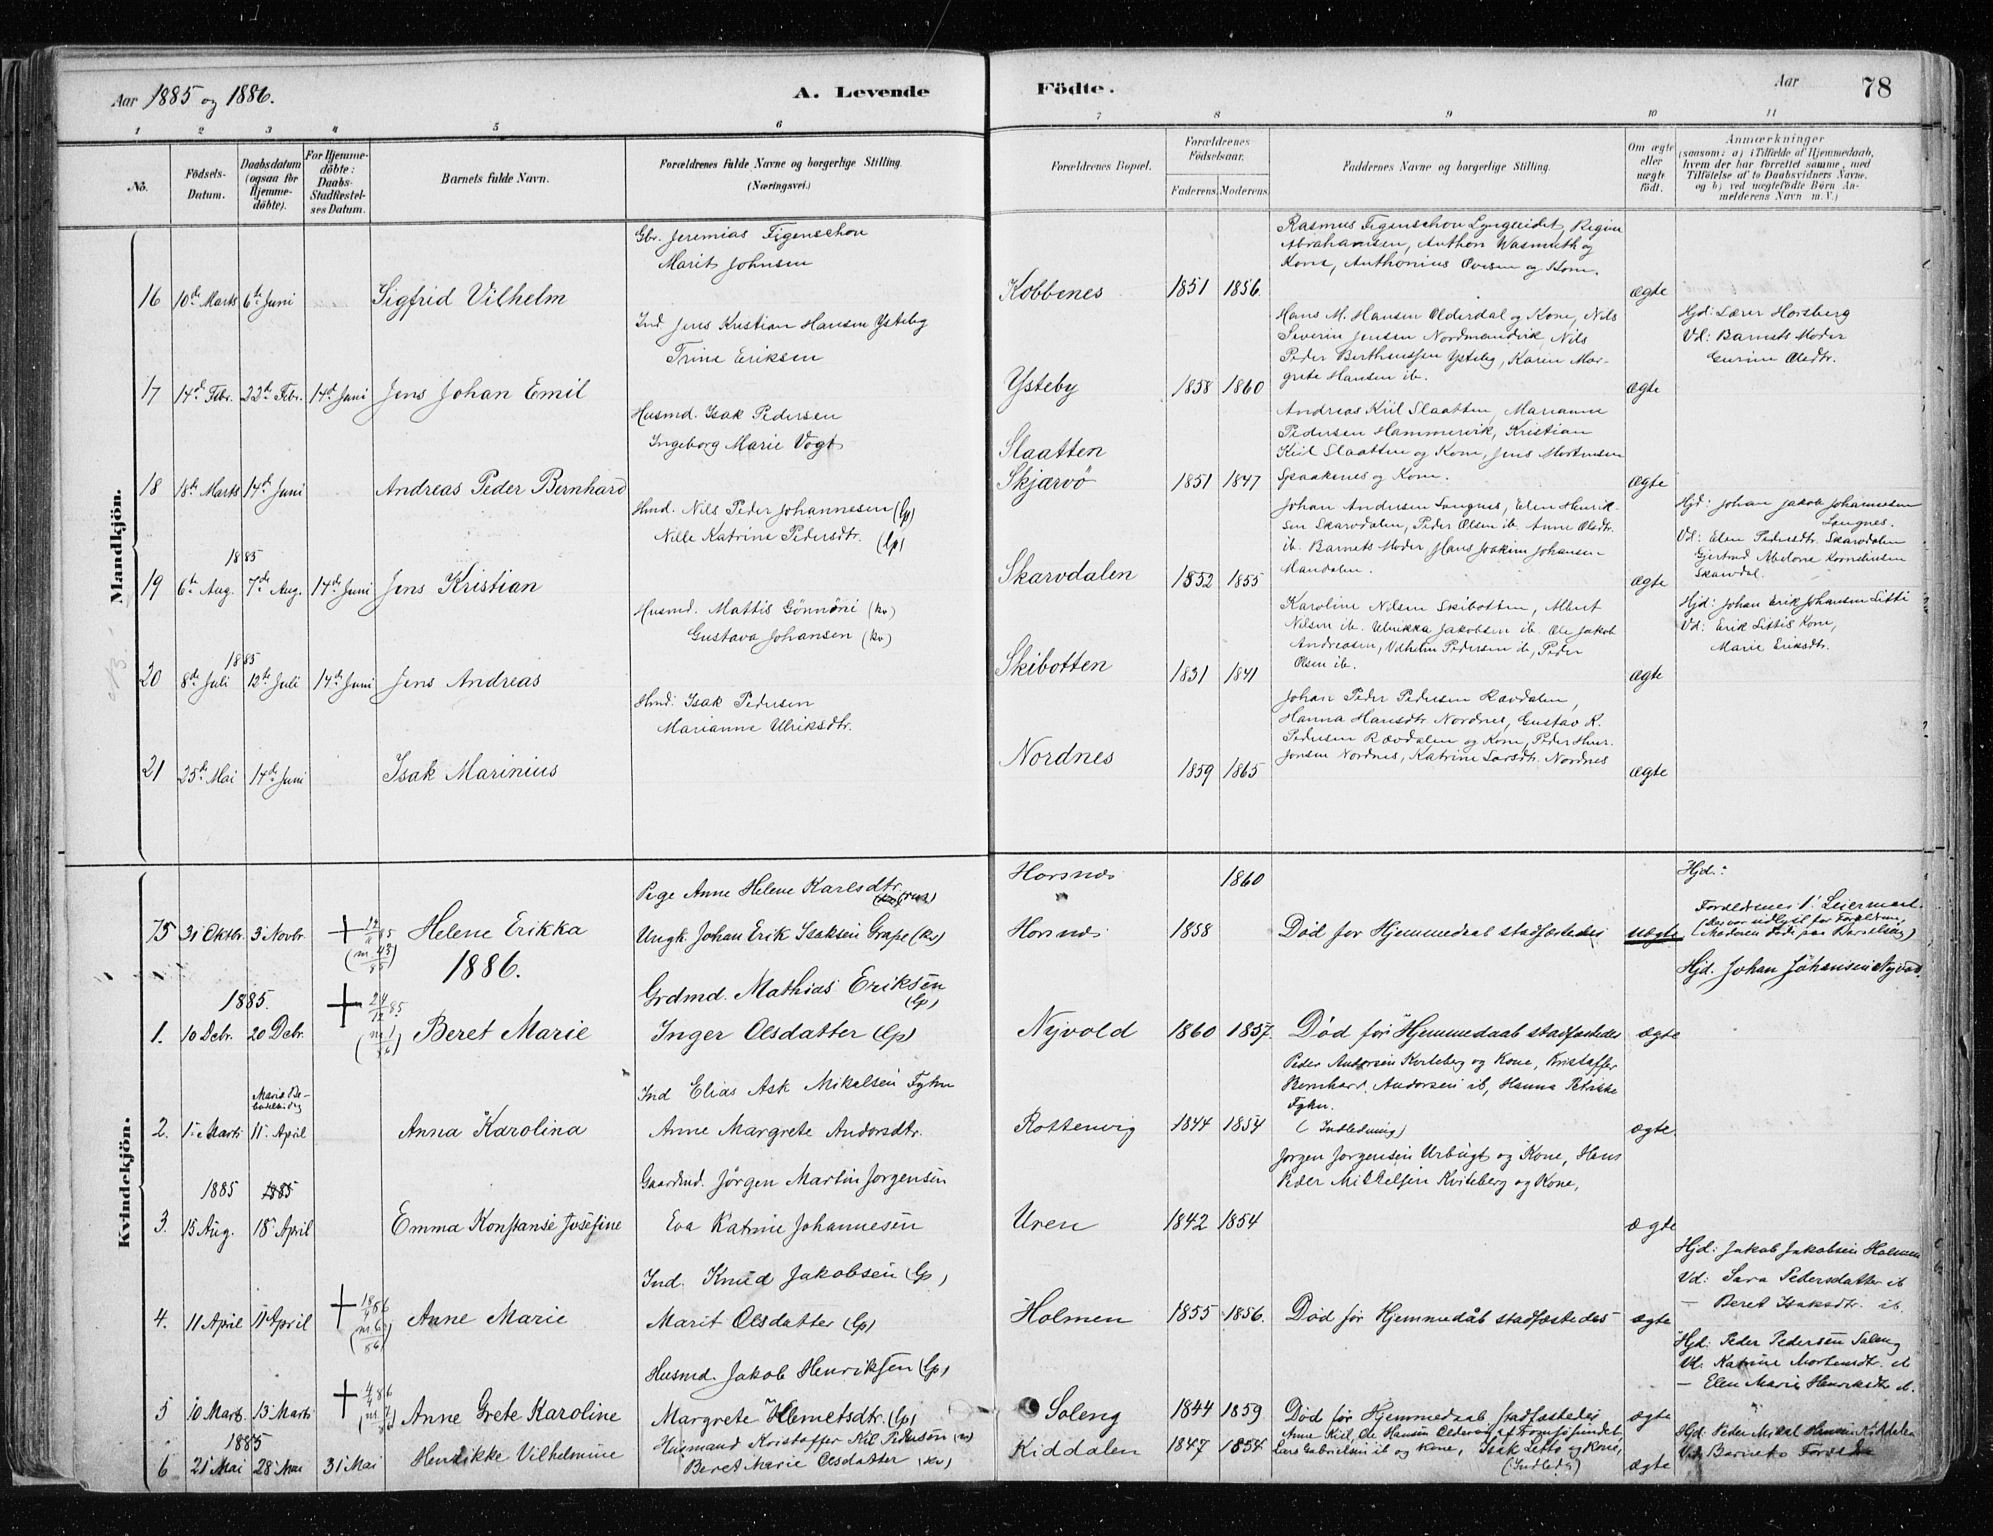 Aar 1885 og 1886.
A. Levende
Födte.
Aar
78
1 2 3 4 5 6 7 8 9 10 11
No.
Födsels-Datum.
Daabsdatum (ogsaa for Hjemme-döbte).
For Hjemme-döbte: Daabs-Stadfæstel-ses Datum.
Barnets fulde Navn.
Forældrenes fulde Navne og borgerlige Stilling.
(Næringsvei.)
Forældrenes Bopæl.
Forældrenes Födselsaar.
Faderens. Moderens.
Faddernes Navne og borgerlige Stilling.
Om ægte eller uægte födt.
Anmærkninger
(saasom: a) i Tilfælde af Hjemmedaab,
hvem der har forrettet samme, med
Tilföielse af to Daabsvidners Navne,
og b) ved uægtefödte Börn An-
melderens Navn m. V.)
Mandkjön.
Gbr. Jeremias Figenschou
Marit Johnsen
16 10de Marts 6te Juni Sigfrid Vilhelm
Kobbenes 1851 1856.
Rasmus Figenschou Lyngseidet, Regine
Abrahamsen, Anthon Wasmuth og
Kone, Anthonius Ovesen og Kone.
ægte
Ind. Jens Kristian Hansen Ysteby
Trine Eriksen
17 14de Febr. 22de Febr. 14de Juni Jens Johan Emil
Ysteby 1858 1860
Hans M. Hansen Olderdal og Kone, Nils
Severin Jensen Nordmandvik, Nils
Peder Berthensen Ysteby, Karen Mar-
grete Hansen ib.
ægte
Hjd: Lærer Horsberg
Vd: Barnets Moder
Gurine Olsdtr.
Husmd. Isak Pedersen
Ingeborg Marie Vogt
18 18de Marts 14de Juni Andreas Peder Bernhard
Slaatten
Skjærvö 1851 1847
Andreas Kiil Slaatten, Marianne
Pedersen Hammervik, Kristian
Kiil Slaatten og Kone, Jens Mortensen
Spaakenes og Kone.
ægte
Hmd. Nils Peder Johannesen (Lp)
Nille Katrine Pedersdtr. (Lp)
1885
19 6te Aug. 7de Aug. 14de Juni Jens Kristian
Skarvdalen 1852 1855
Johan Andersen Langnes, Elen Henrik-
sen Skarvdalen, Peder Olsen ib. Anne Olsdtr.
ib. Barnets Moder Hans Joakim Johansen
Mandalen.
ægte
Hjd: Johan Jakob Johannesen
Langnes.
Vd: Elen Pedersdtr. Skarvdalen
Gjertrud Abelone Kornelinsen
Skarvdal.
Husmd. Mattis Gönnöni (kv)
Gustava Johansen (kv)
1885
20 8de Juli 12te Juli 14de Juni Jens Andreas
Skibotten 1831 1841
Karoline Nilsen Skibotten, Albert
Nilsen ib. Ulrikka Jakobsen ib. Ole Jakob
Andreasen, Vilhelm Pedersen ib, Peder
Olsen ib.
ægte
Hjd: Johan Erik Johansen Litti
Vd: Erik Littis Kone,
Marie Eriksdtr.
Hmd: Isak Pedersen
Marianne Ulriksdtr.
21 25de Mai 14de Juni Isak Marinius
Nordnes 1859 1865
Johan Peder Pedersen Rævdalen,
Hanna Hansdtr Nordnes, Gustav K.
Pedersen Rævdalen og Kone, Peder Hen-
Jensen Nordnes, Katrine Larsdtr. Nordnes
ægte
Kvindekjön.
Pige Anne Helene Karlsdtr.
75 31 Oktbr. 3 Novbr. Helene Erikka
Ungk. Johan Erik Isaksen Grape (kv)
Horsnes 1860
Horsnes 1858
Död før Hjemmedaab stadfæstedes
uægte
Hjd:
Forældrenes 1' Leiermaal.
1886.
1885.
Grdmd. Mathias Eriksen (Lp)
1. 10 Decbr. 20 Decbr. 24/12 85 Beret Marie
Inger Olsdatter (Lp)
Nyvold 1860 1857.
Död før Hjemmedaab stadfæstedes
ægte
Hjd. Johan Johansen Nyvold.
Ind Elias Ask Mikalsen Fyhn
2. 1ste Marts 11te April Anna Karolina
Anne Margrete Andersdtr.
Rottenvig 1844 1854
Peder Andersen Kviteberg og Kone, Kristoffer
Bernhard Andersen ib, Hanna Petrikke
Fyhn.
(Indledning)
ægte.
Gaardmd. Jörgen Martin Jorgensen
1885 1885
3. 15 Aug. 18 April Emma Konstanse Josefine
Eva Katrine Johannesen
Uren 1842 1854
Jorgen Jorgensen Urbugt og Kone, Hans
Peder Mikkelsen Kviteberg og Kone,
ægte
Ind. Knud Jakobsen (Lp)
4. 11 April 11 April 18/4 86 Anne Marie
Marit Olsdatter (Lp)
Holmen 1855 1856.
Död før Hjemmedåb stadfæstedes
ægte
Hjd: Jakob Jakobsen Holmen
Vd: Sara Pedersdatter ib
— Beret Isaksdtr. ib.
Husmd. Jakob Henriksen (Lp)
5 10 Marts 15 Marts 4/4 86 Anne Grete Karoline
Margrete Klemetsdtr. (Lp)
Soleng 1844 1859
Död før Hjemmedaab stadfæstedes
ægte
Hjd: Peder Pedersen Soleng
Vd: Katrine Mortensdtr. ib
— Elen Marie Henriksdtr ib.
1885
Husmand Kristoffer Kiil Pedersen (n)
6 21 Mai 28 Mai 31 Mai Henrikke Vilhelmine
Beret Marie Olsdatter (kv)
Kiddalen 1847 1854
Lars Gabrielsen ib og Kone, Isak Letto og Kone,
(Indledg)
ægte
Hjd: Peder Mikal
Vd: Barnets